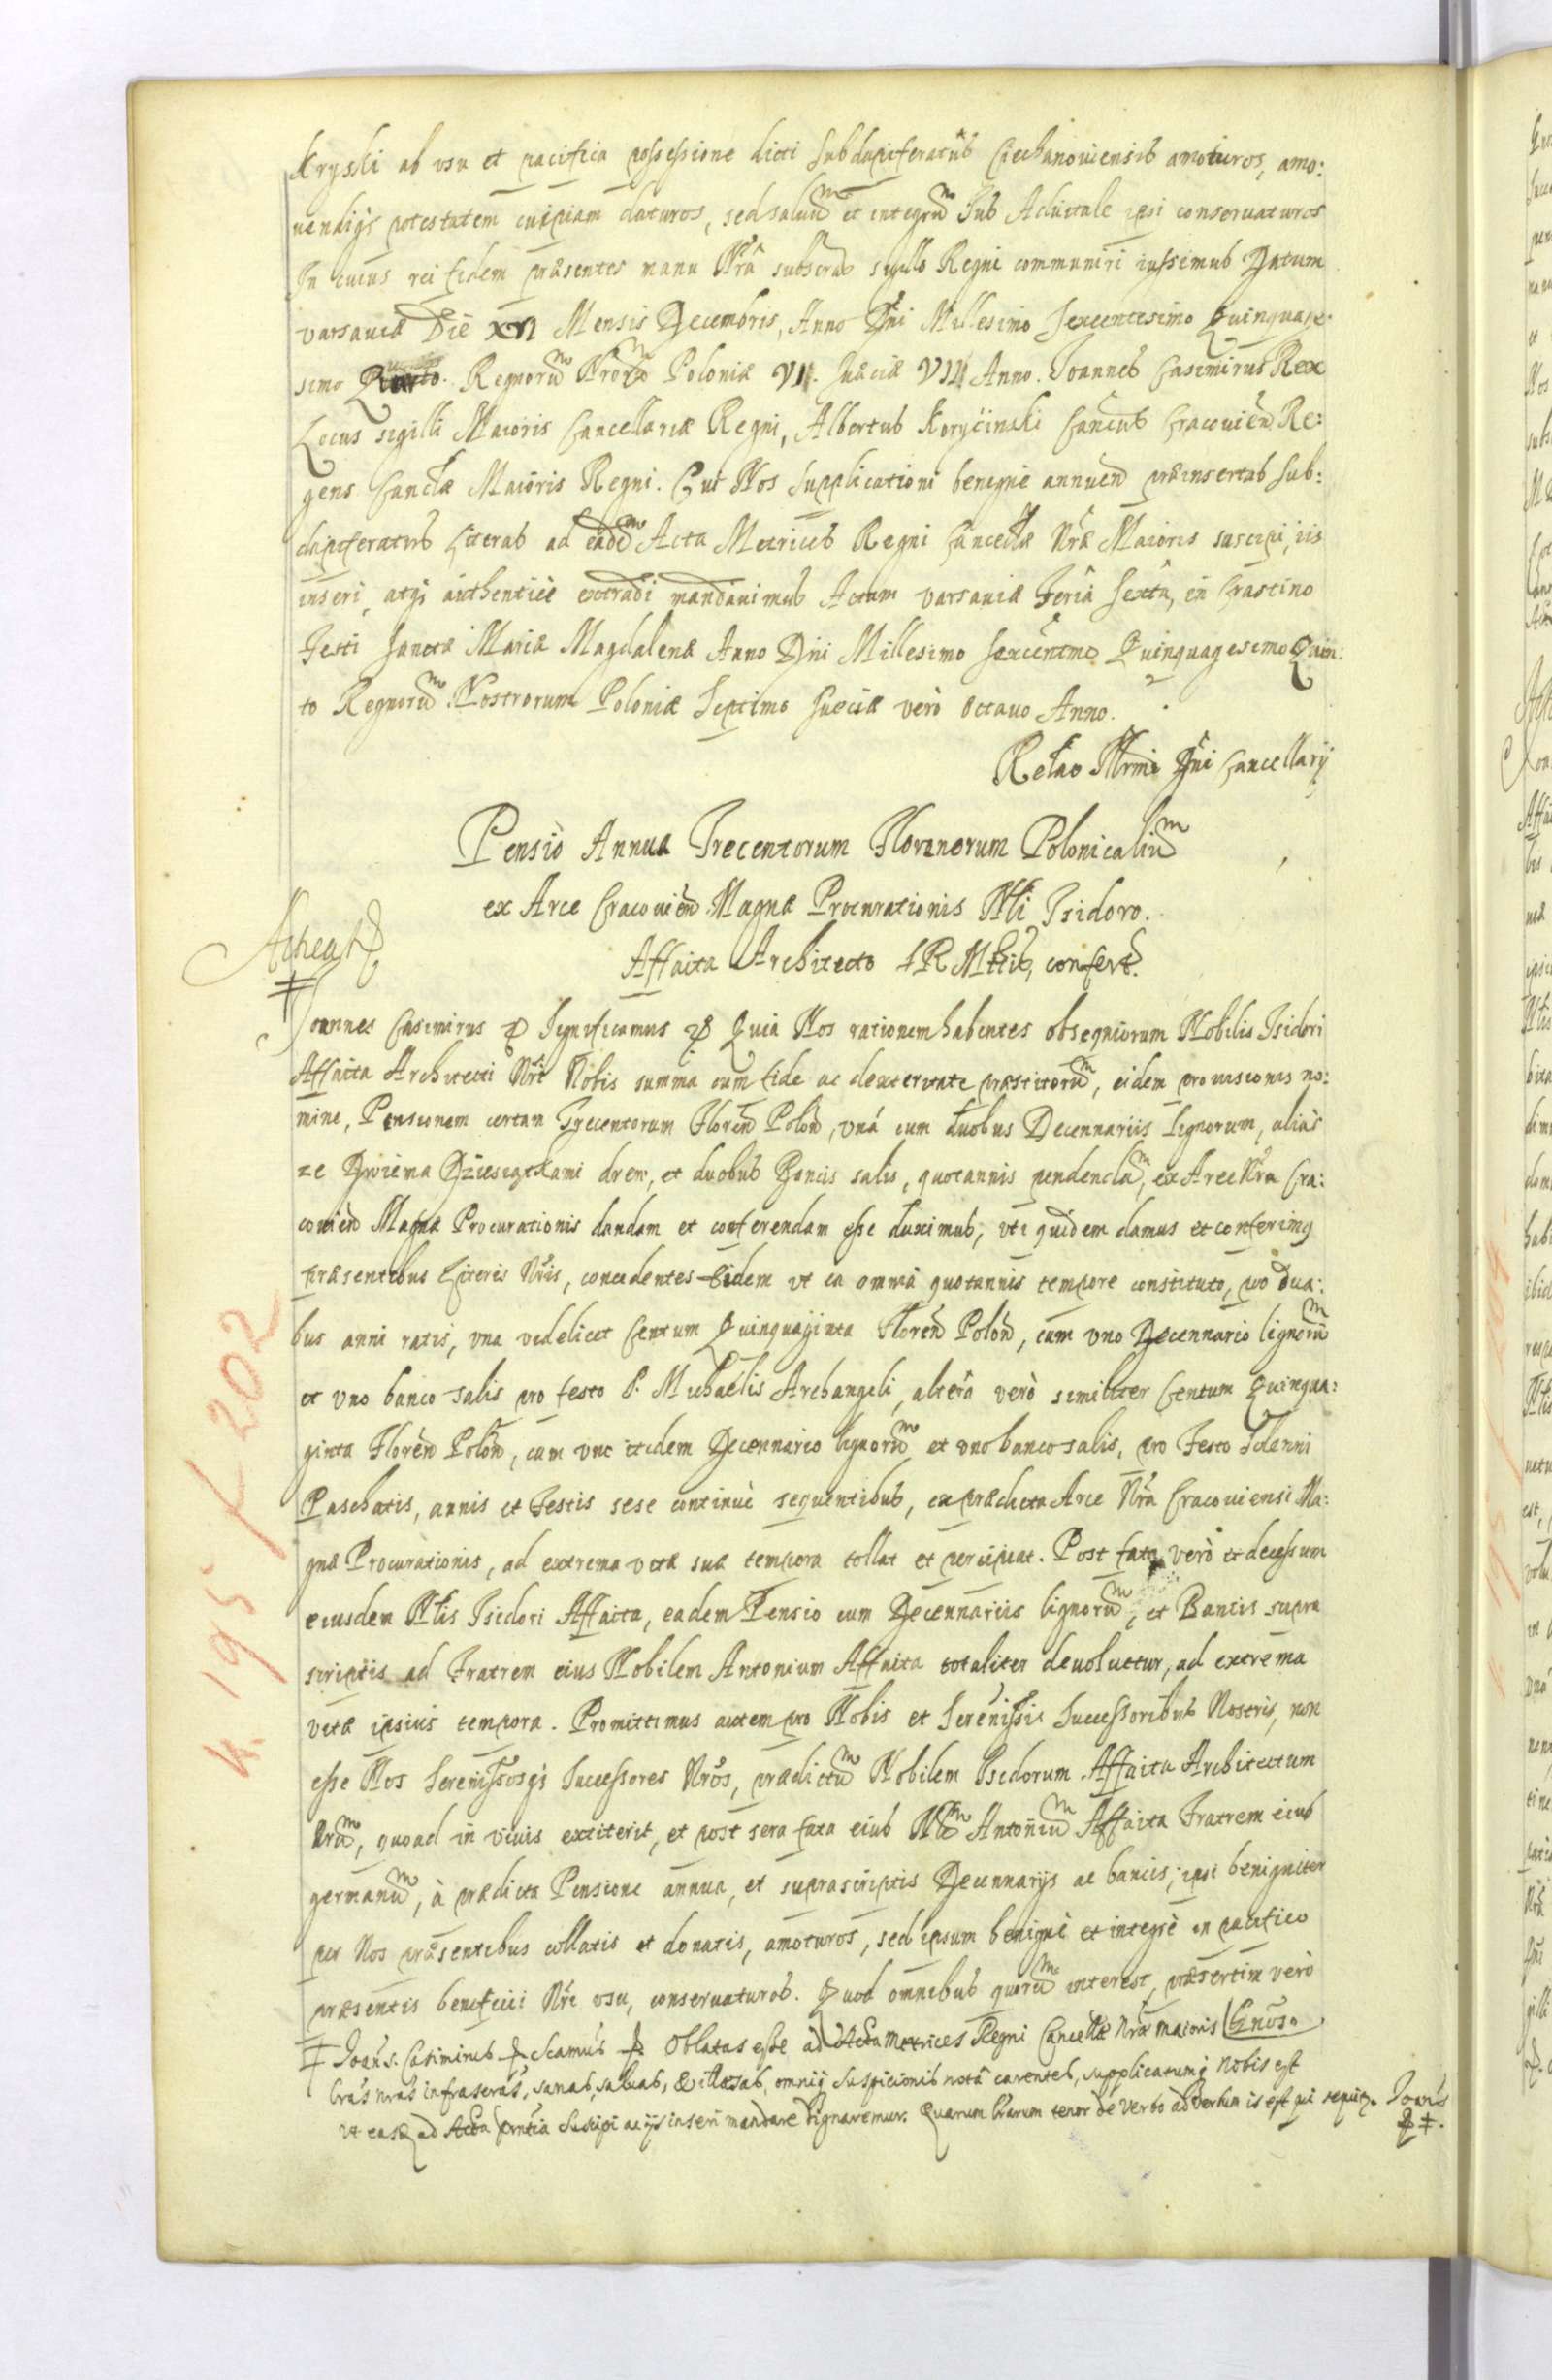 Kryski ab usu et pacifica possessione dicti Subdapiferatus Ciechanoviensis amoturos, amo:
uendiq̃ potestatem cuipiam daturos, sed saluũm et integrũm Ius Aduitale ipsi conseruaturos
In cuius rei fidem præsentes manu Nrã subscrãs sigillo Regni communiri iussimus Datum
Varsauiæ Die XVI Mensis Decembris, Anno Dñi Millesimo Sexcentesimo Quinquage:
simo Regnorũm Nrorũm Poloniæ VII. Sueciæ VIII Anno. Joannes Casimirus Rex
Locus sigilli Maioris Cancellariæ Regni, Albertus Koryciński Cancus Cracouieñ Re:
gens Cancllæ Maioris Regni. Cui Nos Supplicationi benigne annueñ præinsertas Sub:
dapiferatus Literas ad eadẽm Acta Metrices Regni Cancellæ Nræ Maioris suscipi, iis
inseri, atq̃ authenticè extradi mandauimus Actum Varsauiæ Feriâ Sextâ, in Crastino
Festi Sanctæ Mariæ Magdalenæ Anno Dñi Millesimo Sexcentmo Quinquagesimo Quin:
to Regnorũm Nostrorum Poloniæ Septimo Sueciæ verò Octauo Anno.
Relao Illrmi Dñi Cancellarij
Pensio Annua Trecentorum Florenorum Polonicaliũm
ex Arce Cracouieñ Magnæ Procurationis Nli Isidoro.
Affaita Architecto S R Mttis, confert.
‡
Joannes Casimirus Significamus Quia Nos rationem habentes obsequiorum Nobilis Isidori
Affaita Architecti Nri Nobis summa cum fide ac dexteritate præstitorũm, eidem prouisionis no:
mine, Pensionem certam Trecentorum Floreñ Poloñ, vná cum duobus Decennariis Lignorum, aliàs
ze Dwiema Dziesiątkami drew, et duobus Bancis salis, quotannis pendendãm, ex Arce Nra Cra:
couieñ Magnæ Procurationis dandam et conferendam esse duximus, vti quidem damus et conferimq
præsentibus Literis Nris, concedentes Eidem vt ea omnia quotannis tempore constituto, pro dua:
bus anni ratis, vna videlicet Centum Quinquaginta Floreñ Poloñ, cum vno Decennario lignorũm
et vno banco salis pro festo S. Michaëlis Archangeli, alterâ verò similiter Centum Quinqua:
ginta Floreñ Poloñ, cum vno itidem Decennario lignorũm et vno banco salis, pro Festo Solenni
Paschatis, annis et Festis sese continuè sequentibus, ex prædicta Arce Nra Cracouiensi Ma:
gnæ Procurationis, ad extrema vitæ suæ tempora tollat et percipiat. Post fata verò et decessum
eiusdem Nlis Isidori Affaita, eadem Pensio cum Decennariis lignorũm, et Bancis supra
scriptis ad Fratrem eius Nobilem Antonium Affaita totaliter deuoluetur, ad extrema
vitæ ipsius tempora. Promittimus autem pro Nobis et Serenissis Successoribus Nostris, non
esse Nos Serenissosq̃ Successores Nros, prædictũm Nobilem Isidorum Affaita Architectum
Nrũm, quoad in viuis extiterit, et post sera fata eius Nlẽm Antoniũm Affaita Fratrem eius
germanũm, à prædicta Pensione annua, et suprascriptis Decennarijs ac bancis, ipsi benigniter
per Nos præsentibus collatis et donatis, amoturos, sed ipsum benignè et integrè in pacifico
præsentis beneficii Nri vsu, conseruaturos. Quod omnibus quorũm interest, præsertim verò
‡ Joans. Casimirus Scamus Oblatas esse ad Acta Metrices Regni Cancellæ Nræ Maioris
lras nras infrascras, sanas, saluas, & illæsas, omniq suspicionis notâ carentes, supplicatumq nobis est
vt easq ad Acta prntia suscipi ac ijs inseri mandare dignaremur. Quarum lrarum tenor de verbo ad verbum is est qui sequitr. Joans
‡.
K. 195 f 202